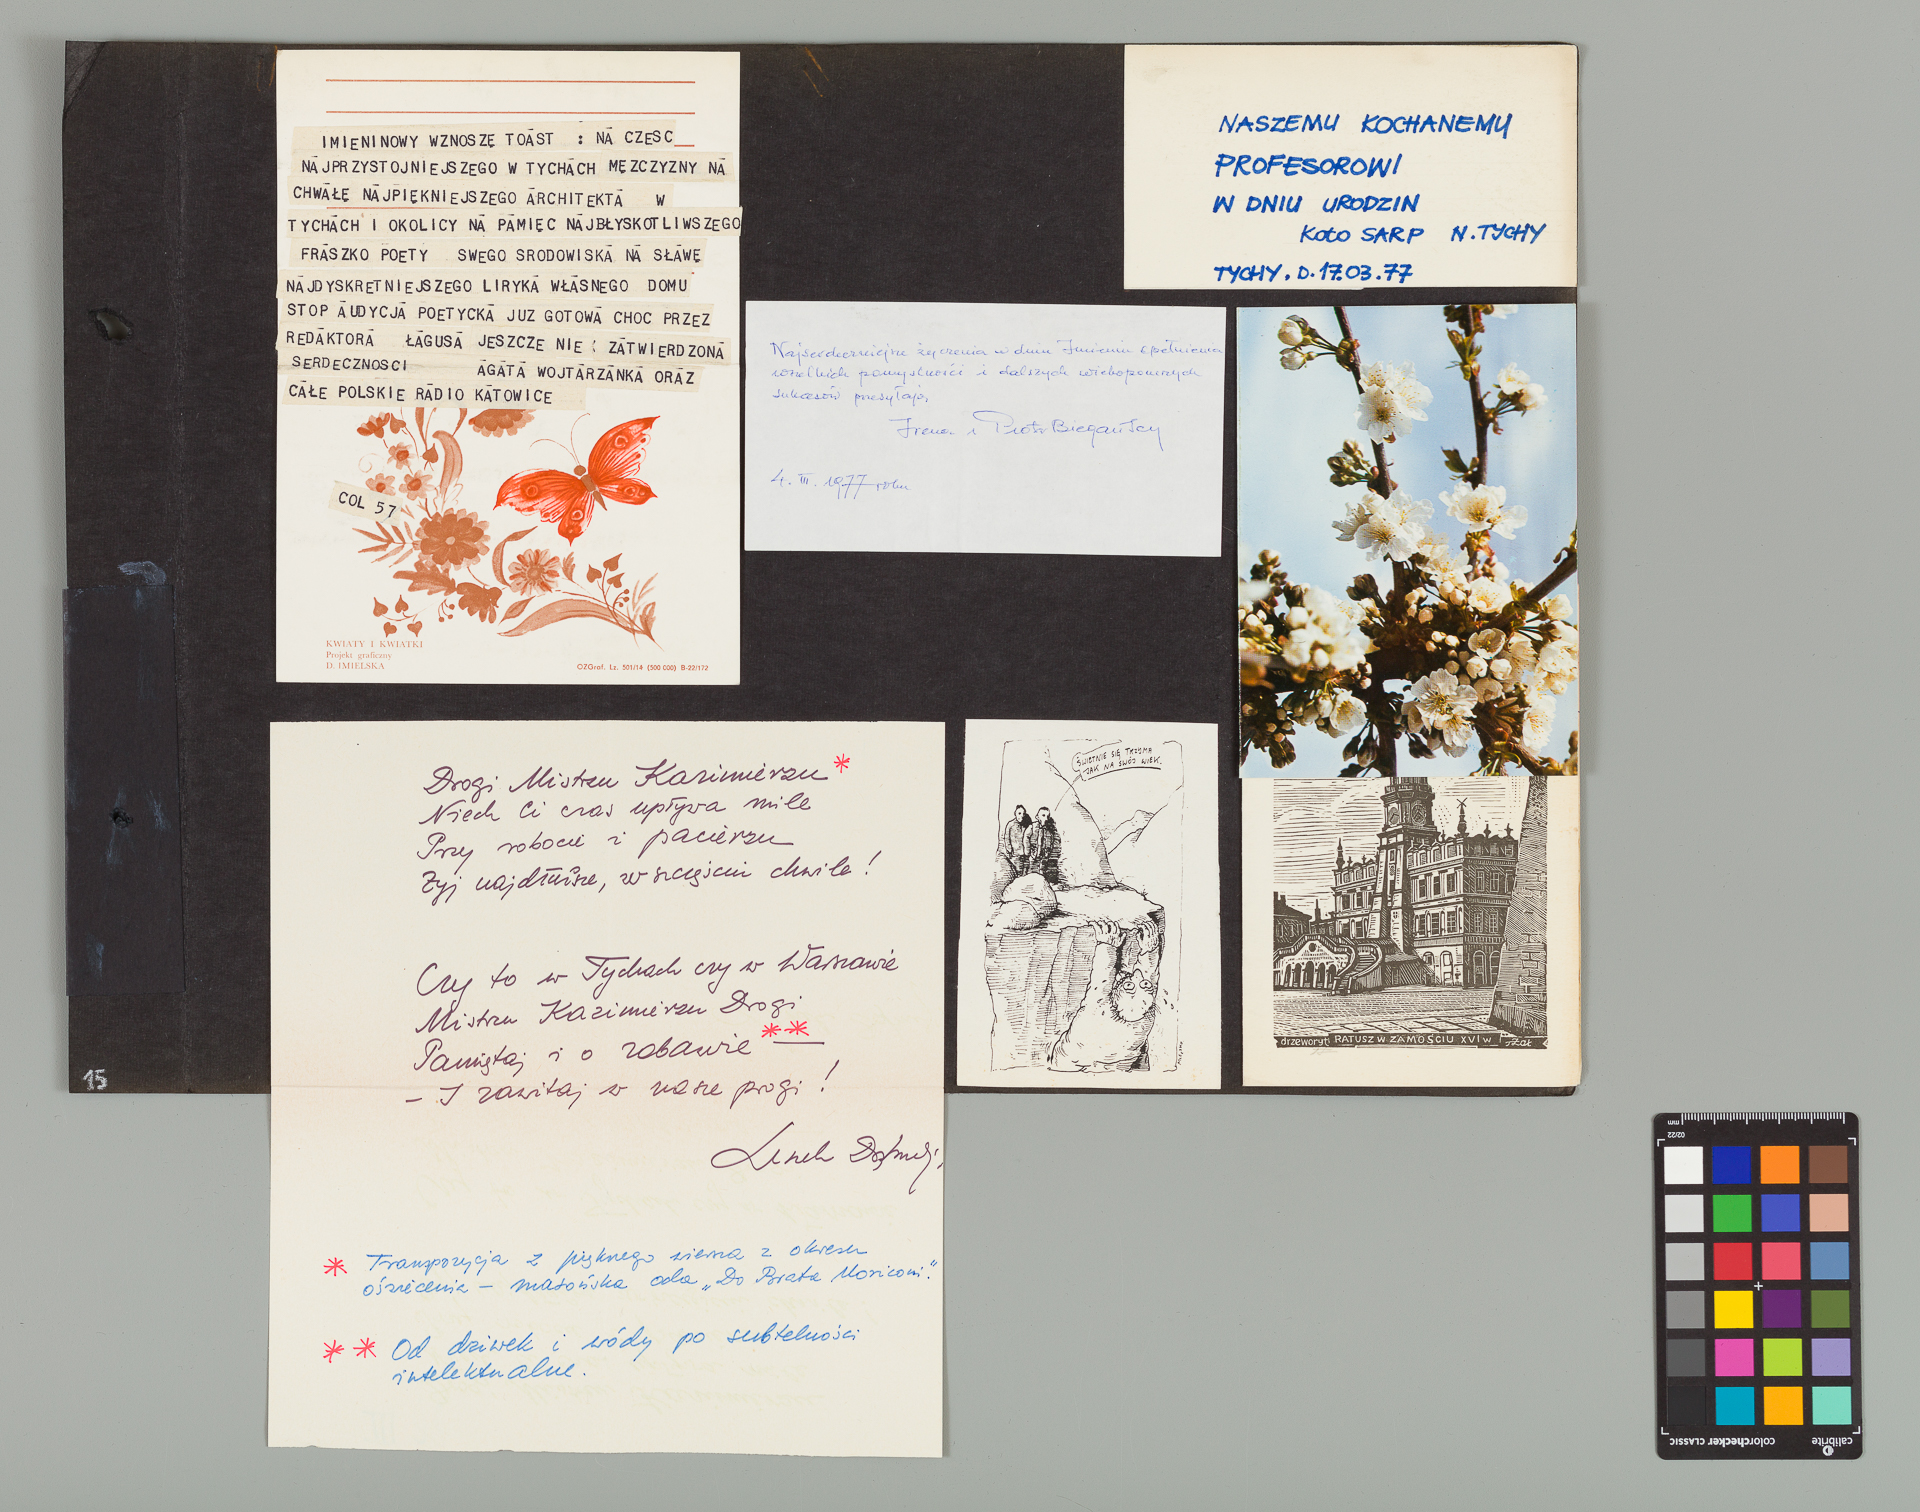 IMIENINOWY WZNOSZĘ TOAST : NA CZESC
NAJPRZYSTOJNIEJSZEGO W TYCHACH MĘZCZYZNY NA
CHWAŁĘ NAJPIĘKNIEJSZEGO ARCHITEKTA W
TYCHACH I OKOLICY NA PAMIĘC NAJBŁYSKOTLIWSZEGO
FRASZKO POETY SWEGO SRODOWISKA NA SŁAWĘ
NAJDYSKRETNIEJSZEGO LIRYKA WŁASNEGO DOMU
STOP AUDYCJA POETYCKA JUZ GOTOWA CHOC PRZEZ
REDAKTORA ŁAGUSA JESZCZE NIE ZATWIERDZONA
SERDECZNOSCI AGATA WOJTARZANKA ORAZ
CAŁE POLSKIE RADIO KATOWICE
COL 57
KWIATY I KWIATKI
Projekt graficzny
D. IMIELSKA
OZGraf. Lz. 501/14 (500 000) B-22/172
NASZEMU KOCHANEMU
PROFESOROWI
W DNIU URODZIN
Koło SARP N.TYCHY
TYCHY. D. 17.03.77
Najserdeczniejsze życzenia w dniu Imienin spełnienia
wszelkich pomyślności i dalszych wiekopomnych
sukcesów przesyłają
Irena i Piotr Biegańscy
4. III. 1977 roku
Drogi Mistrzu Kazimierzu *
Niech Ci czas upływa mile
Przy robocie i pacierzu
Żyj najdłuższe, w szczęściu chwile!
Czy to w Tychach czy w Warszawie
Mistrzu Kazimierzu Drogi
Pamiętaj i o zabawie **
– I zawitaj w nasze progi!
Leszek
* Transpozycja z pięknego wiersza z okresu
oświecenia – masońska oda „Do Brata Moriconi".
** Od dziwek i wódy po subtelności
intelektualne.
ŚWIETNIE SIĘ TRZYMA
JAK NA SWÓJ WIEK.
drzeworyt RATUSZ W ZAMOŚCIU XVI W
15
mm
02/22
calibrite
colorchecker CLASSIC